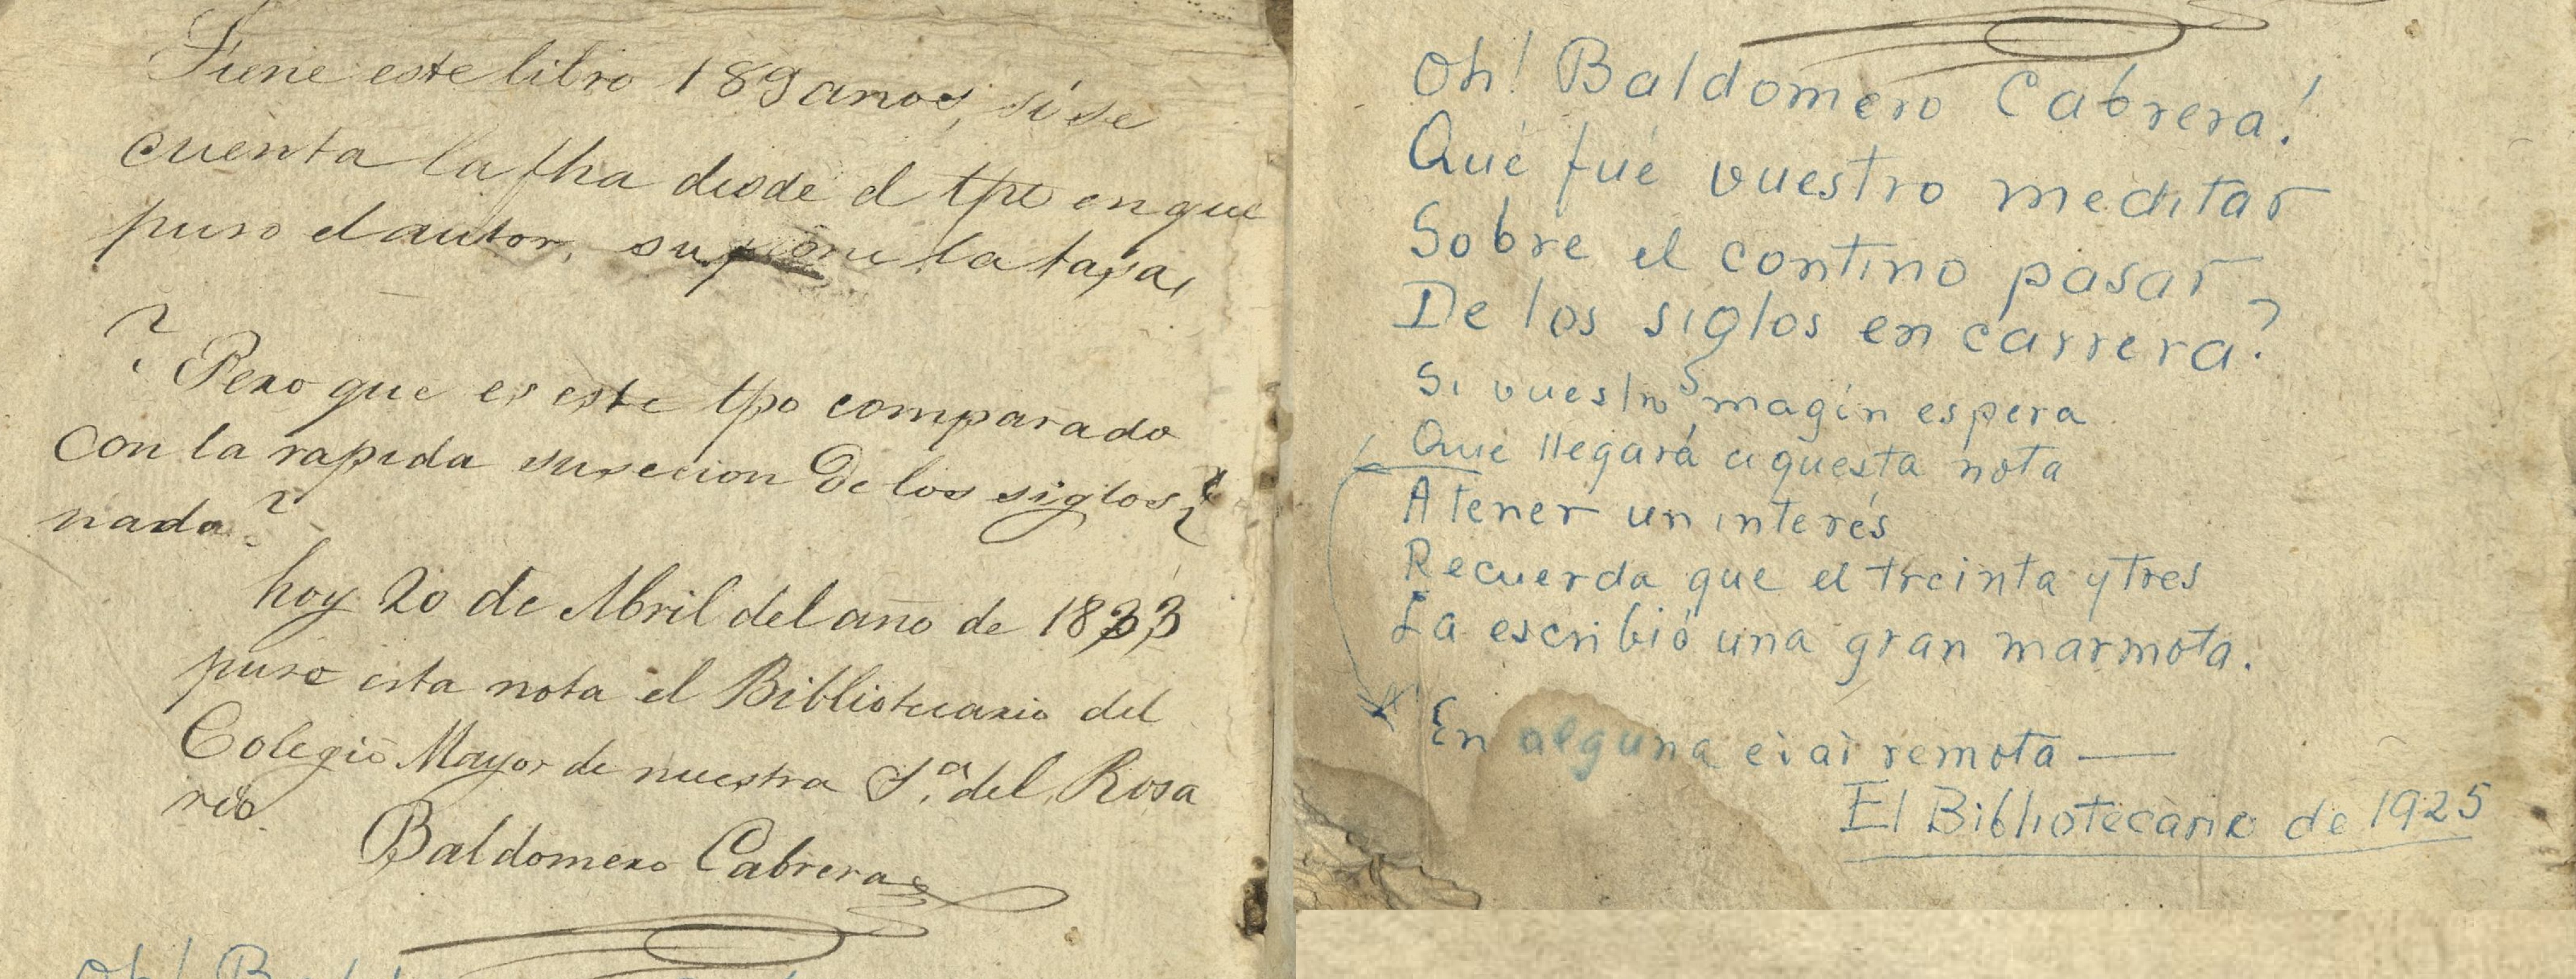 Tiene este libro 189 anos, si se
cuenta la fha desde el tpo en que
puso el autor, supone la tasa,
? Pero que es este tpo comparado
con la rapida susecion de los siglos?
nada?
hoy 20 de Abril del año de 1833
puso esta nota el Bibliotecario del
Colegio Mayor de nuestra Sª. del Rosa
rio
Baldomero Cabrera
Oh! Baldomero Cabrera!
Qué fué vuestro meditar
Sobre el contino pasar
De los siglos en carrera?
Si vuestro magín espera
Que llegará aquesta nota
A tener un interés
Recuerda que el treinta y tres
La escribió una gran marmota.
En alguna remota —
El Bibliotecario de 1925